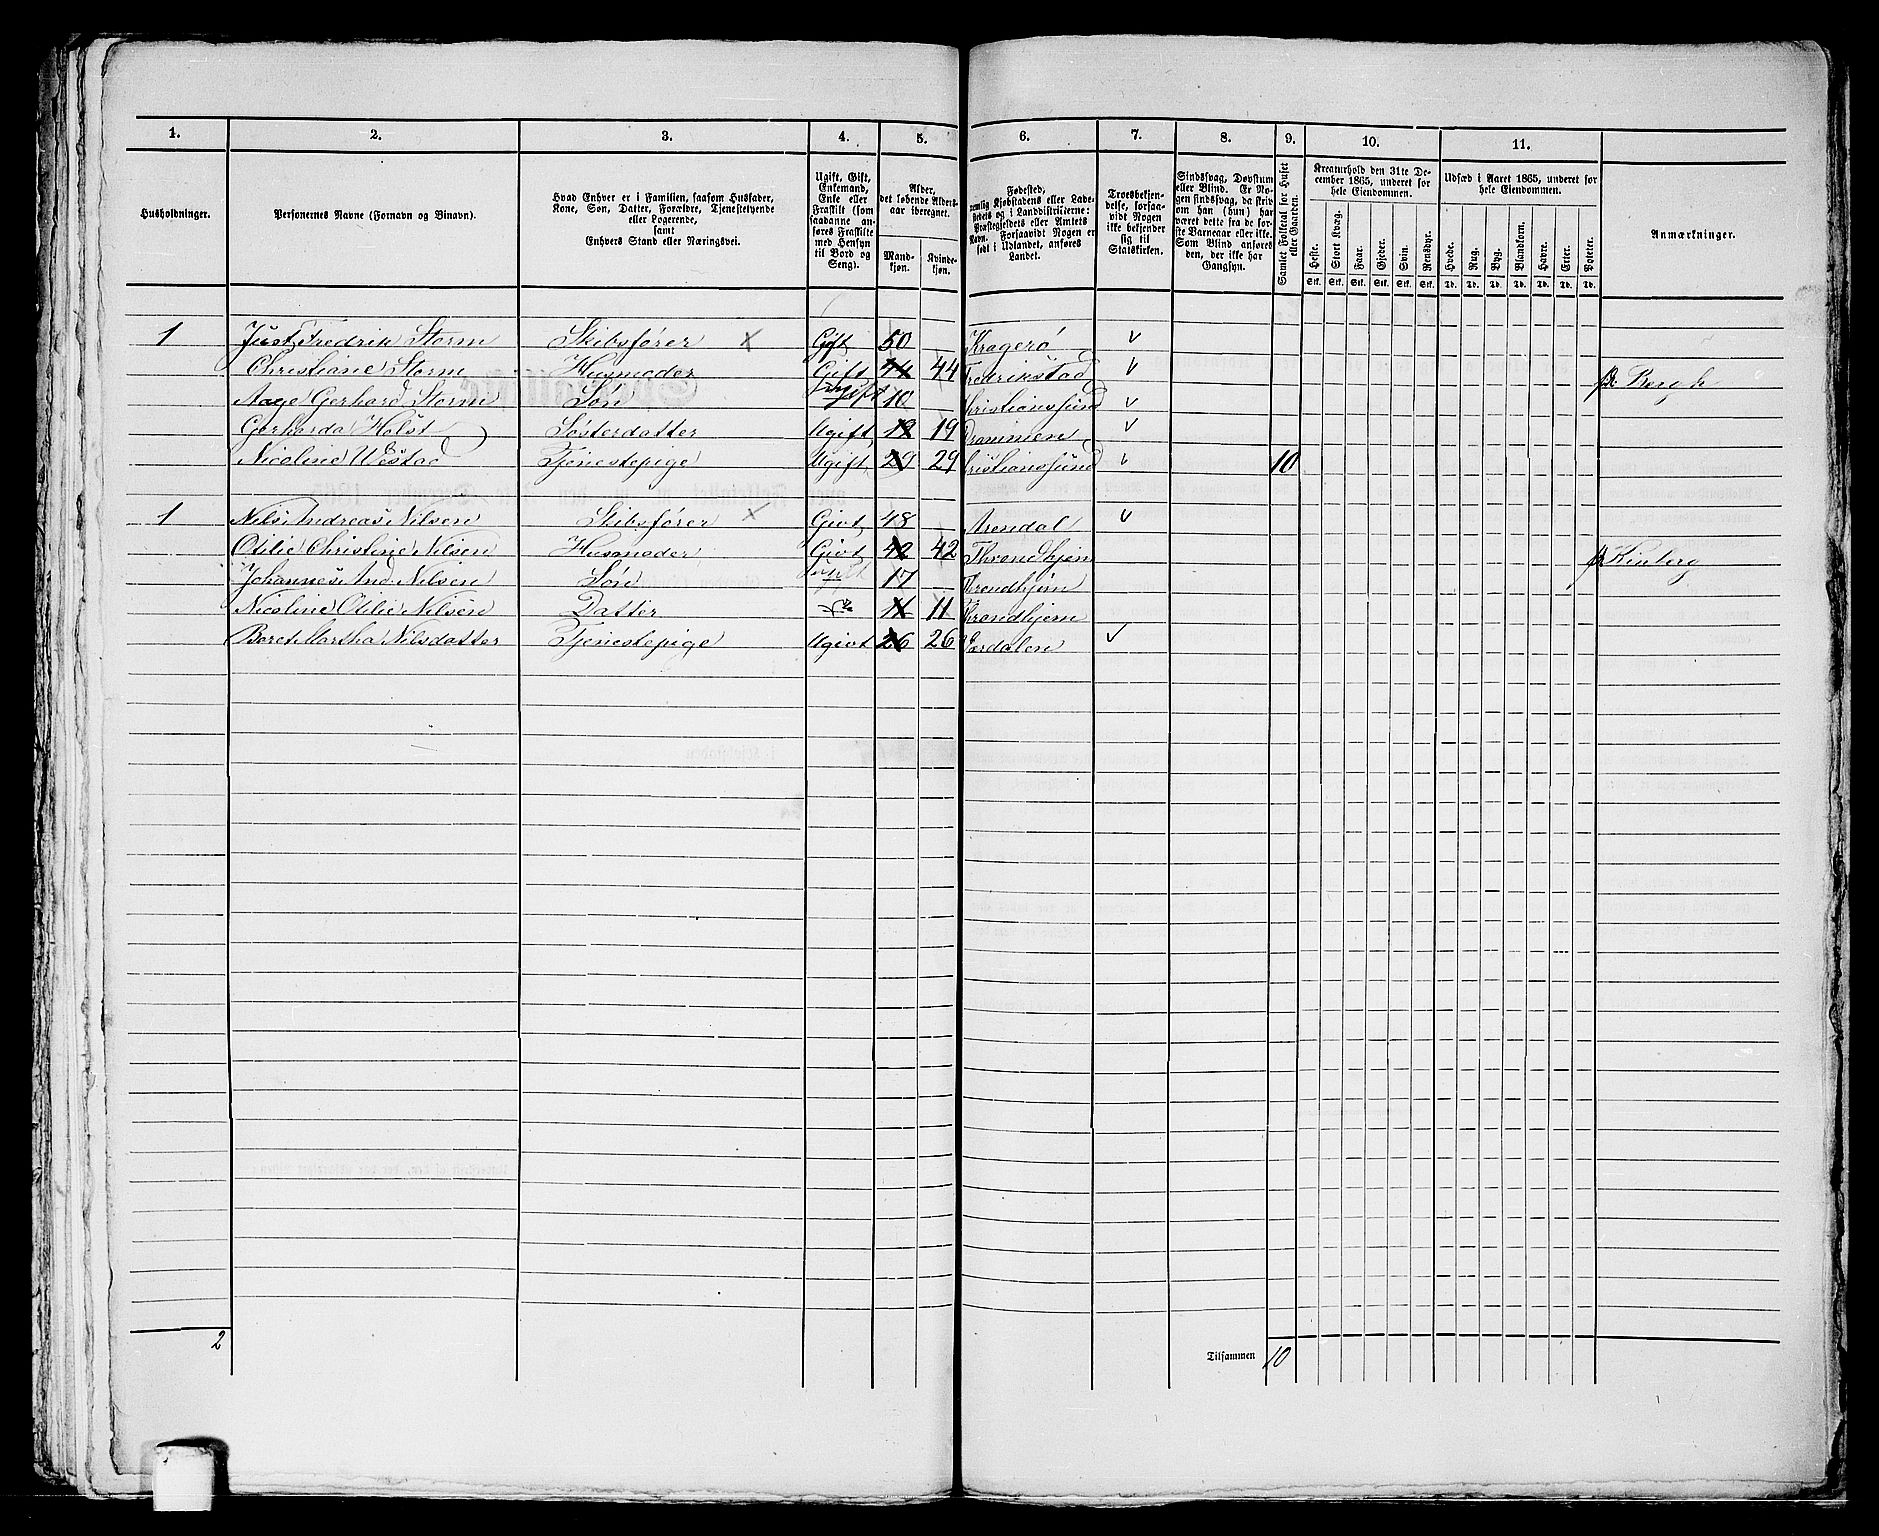 1. 2. 3. 4. 5. 6. 7. 8. 9. 10. 11.
Husholdninger.
Personernes Navne (Fornavn og Binavn).
Hvad Enhver er i Familien, saasom Husfader,
Kone, Søn, Datter, Forældre, Tjenestetyende
eller Logerende,
samt
Enhvers Stand eller Næringsvei.
Ugift, Gift,
Enkemand,
Enke eller
Fraskilt (som
saadanne an-
føres Fraskilte
med Hensyn
til Bord og
Seng).
Alder,
det løbende Alders-
aar iberegnet.
Mand-
kjøn.
Kvinde-
kjøn.
Fødested,
nemlig Kjøbstadens eller Lade-
stedets og i Landdistrikterne:
Præstegjeldets eller Amtets
Navn. Forsaavidt Nogen er
født i Udlandet, anføres
Landet.
Troesbekjen-
delse, forsaa-
vidt Nogen
ikke bekjender
sig til
Statskirken.
Sindssvag, Døvstum
eller Blind. Er No-
gen sindssvag, da skriv
om han (hun) har
været dette fra de før-
ste Barneaar eller ikke.
Som Blind anføres
den, der ikke har
Gangsyn.
Samlet Folketal for Huset
eller Gaarden.
Kreaturhold den 31te De-
cember 1865, underet for
hele Eiendommen.
Heste. Stort Kvæg. Faar. Gjeder. Svin. Rensdyr.
Stk. Stk. Stk. Stk. Stk. Stk.
Udsæd i Aaret 1865, underet for
hele Eiendommen.
Hvede. Rug. Byg. Blandkorn. Havre. Erter. Poteter.
Td. Td. Td. Td. Td. Td. Td.
Anmærkninger.
1 Just Fredrik Storm Skibsfører × Gift 50 Kragerø
Christiane Storm Husmoder Gift 44 44 Fredrikstad Bergh
Aage Gerhard Storm Søn Ugift 10 Christianssund
Gerharda Holst Søsterdatter Ugift 19 19 Drammen
Nicoline Westad Tjenestepige Ugift 29 29 Christianssund 10
1 Nils Andreas Nilsen Skibsfører × Givt 48 Arendal
Otilie Christine Nilsen Husmoder Givt 42 42 Throndhjem Kinberg
Johannes And. Nilsen Søn Ugift 17 Throndhjem
Nicoline Otilie Nilsen Datter 11 11 Throndhjem
Beret Martha Nilsdatter Tjenestepige Ugivt 26 26 Værdalen
2 Tilsammen 10